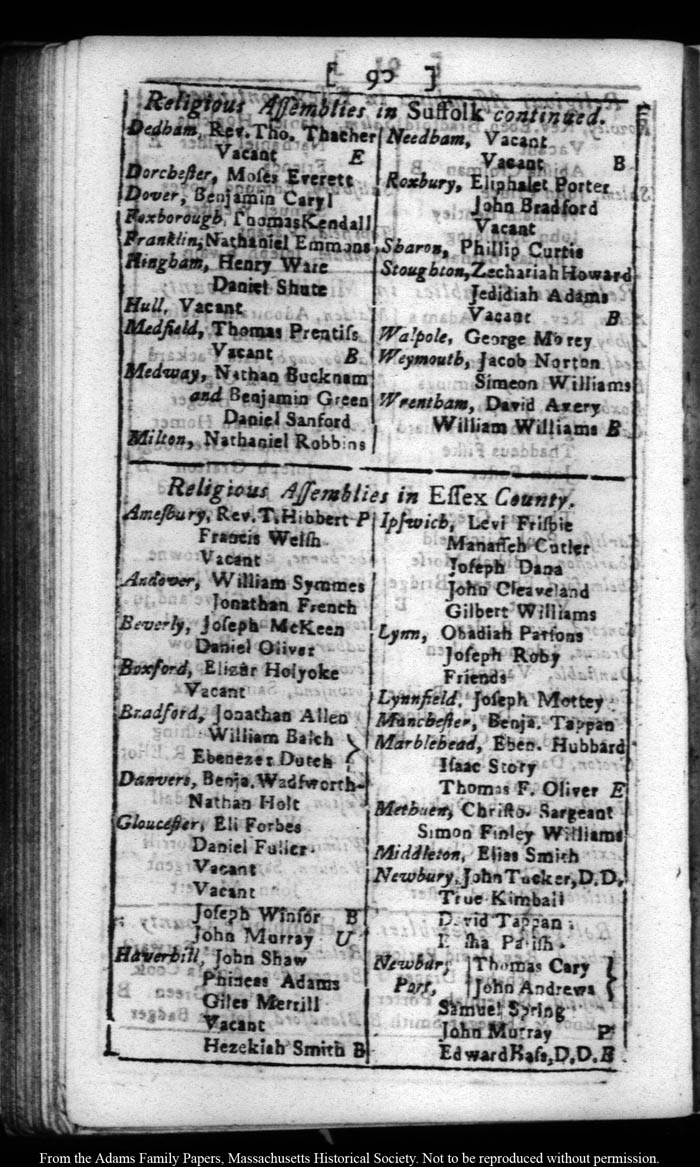 [ 90 ]
Religious Aſſemblies in Suffolk continued.
Dedham, Rev. Tho. Thacher
Vacant E
Dorcheſter, Moſes Everett
Dover, Benjamin Caryl
Foxborough, Thomas Kendall
Franklin, Nathaniel Emmons
Hingham, Henry Ware
Daniel Shute
Hull, Vacant
Medfield, Thomas Prentiſs
Vacant B
Medway, Nathan Bucknam
and Benjamin Green
Daniel Sanford
Milton, Nathaniel Robbins
Needham, Vacant
Vacant B
Roxbury, Eliphalet Porter
John Bradford
Vacant
Sharon, Phillip Curtis
Stoughton, Zechariah Howard
Jedidiah Adams
Vacant B
Walpole, George Morey
Weymouth, Jacob Norton
Simeon Williams
Wrentham, David Avery
William Williams B
Religious Aſſemblies in Eſſex County.
Ameſbury, Rev. T. Hibbert P
Francis Welſh
Vacant
Andover, William Symmes
Jonathan French
Beverly, Joſeph McKeen
Daniel Oliver
Boxford, Elizur Holyoke
Vacant
Bradford, Jonathan Allen
William Balch }
Ebenezer Dutch }
Danvers, Benja. Wadſworth
Nathan Holt
Glouceſter, Eli Forbes
Daniel Fuller
Vacant
Vacant
Joſeph Winſor B
John Murray U
Haverhill, John Shaw
Phineas Adams
Giles Merrill
Vacant
Hezekiah Smith B
Ipſwich, Levi Friſbie
Manaſſeh Cutler
Joſeph Dana
John Cleaveland
Gilbert Williams
Lynn, Obadiah Parſons
Joſeph Roby
Friends
Lynnfield, Joſeph Mottey
Mancheſter, Benja. Tappan
Marblehead, Eben. Hubbard
Iſaac Story
Thomas F. Oliver E
Methuen, Chriſto. Sargeant
Simon Finley Williams
Middleton, Elias Smith
Newbury, John Tucker, D.D.
True Kimball
David Tappan
Pariſh
Newbury Thomas Cary }
Port, John Andrews }
Samuel Spring
John Murray P
Edward Baſs, D.D. E
From the Adams Family Papers, Massachusetts Historical Society. Not to be reproduced without permission.